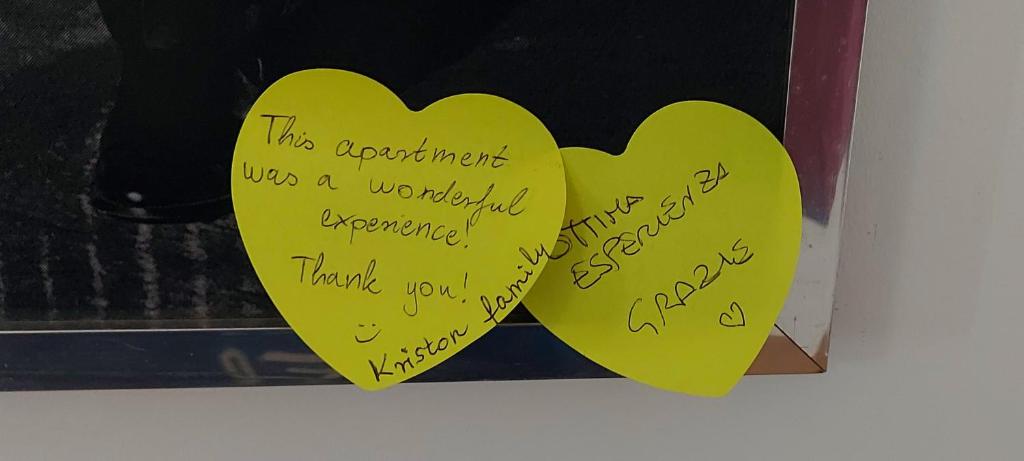 This apartment
was a wonderful
experience!
Thank you!
:)
Kriston family
OTTIMA
ESPERIENZA
GRAZIE
♡